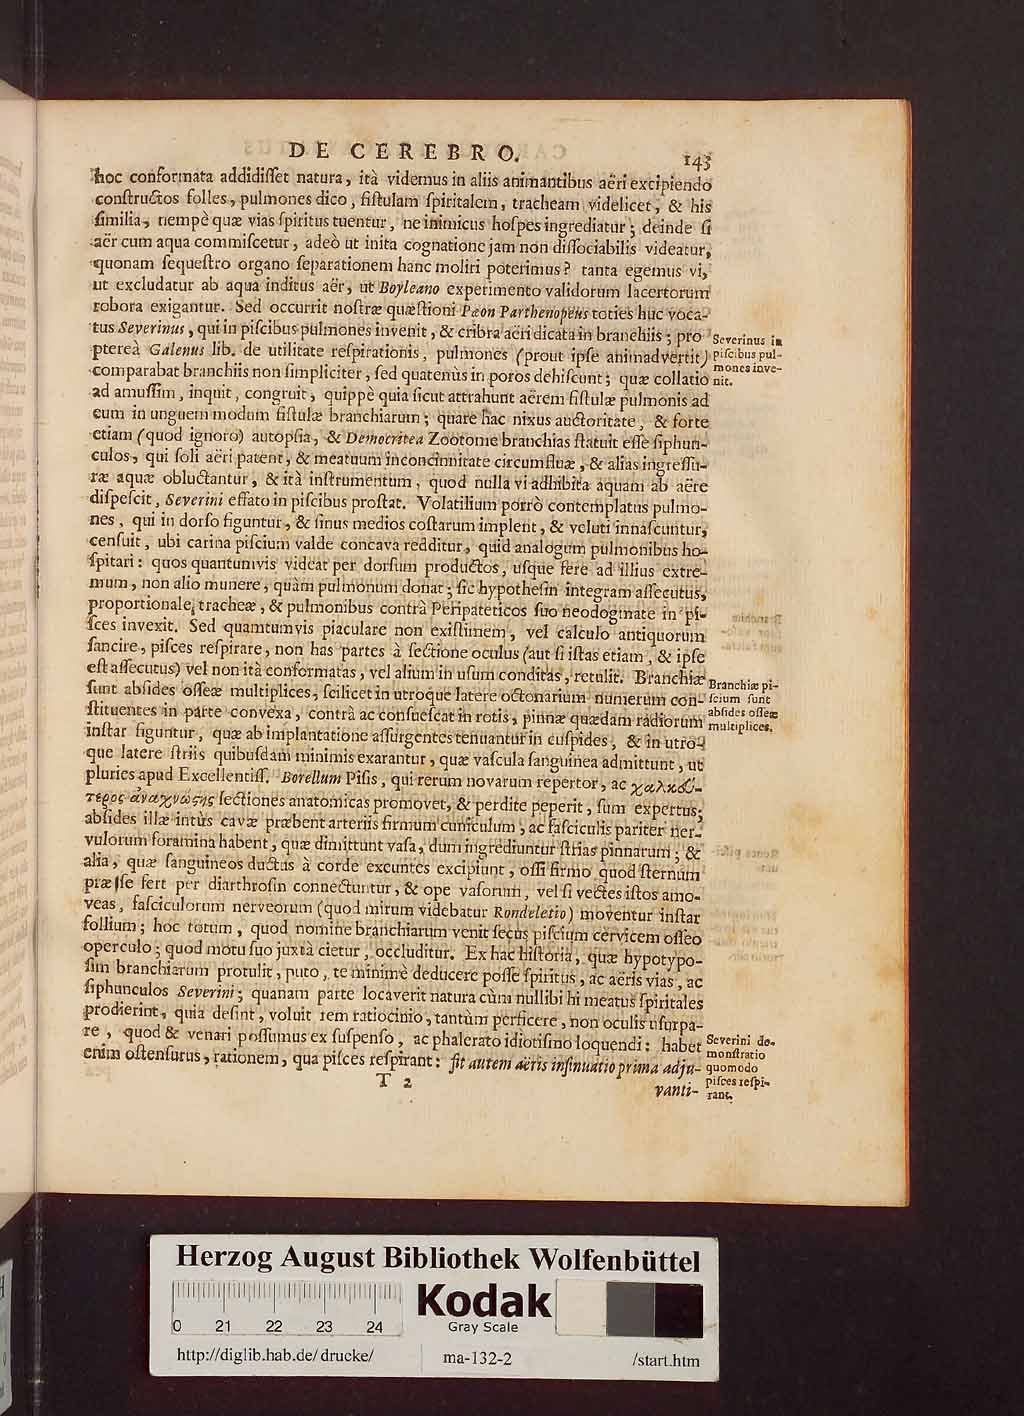 DE CEREBRO.
143
hoc conformata addidiſſet natura, ità videmus in aliis animantibus aëri excipiendo
conſtructos folles, pulmones dico, fiſtulam ſpiritalem, tracheam videlicet, & his
ſimilia, nempè quæ vias ſpiritus tuentur, ne inimicus hoſpes ingrediatur; deinde ſi
aër cum aqua commiſcetur, adeò ut inita cognatione jam non diſſociabilis videatur,
quonam ſequeſtro organo ſeparationem hanc moliri poterimus? tanta egemus vi,
ut excludatur ab aqua inditus aër, ut Boyleano experimento validorum lacertorum
robora exigantur. Sed occurrit noſtræ quæſtioni Pæon Parthenopëus toties huc voca-
tus Severinus, qui in piſcibus pulmones invenit, & cribra aëri dicata in branchiis; pro
Severinus in
piſcibus pul-
mones inve-
nit.
ptereà Galenus lib. de utilitate reſpirationis, pulmones (prout ipſe animadvertit)
comparabat branchiis non ſimpliciter, ſed quatenùs in poros dehiſcunt; quæ collatio
ad amuſſim, inquit, congruit, quippè quia ſicut attrahunt aërem fiſtulæ pulmonis ad
eum in unguem modum fiſtulæ branchiarum; quare hac nixus auctoritate, & forte
etiam (quod ignoro) autopſia, & Democritea Zootome branchias ſtatuit eſſe ſiphun-
culos, qui ſoli aëri patent, & meatuum inconcinnitate circumfluæ, & alias ingreſſu-
ræ aquæ obluctantur, & ità inſtrumentum, quod nulla vi adhibita aquam ab aëre
diſpeſcit, Severini effato in piſcibus proſtat. Volatilium porrò contemplatus pulmo-
nes, qui in dorſo figuntur, & ſinus medios coſtarum implent, & veluti innaſcuntur,
cenſuit, ubi carina piſcium valde concava redditur, quid analogum pulmonibus ho-
ſpitari: quos quantumvis videat per dorſum productos, uſque fere ad illius extre-
mum, non alio munere, quàm pulmonum donat; ſic hypotheſin integram aſſecutus,
proportionale tracheæ, & pulmonibus contrà Peripateticos ſuo neodogmate in pi-
ſces invexit. Sed quamtumvis piaculare non exiſtimem, vel calculo antiquorum
ſancire, piſces reſpirare, non has partes à ſectione oculus (aut ſi iſtas etiam, & ipſe
eſt aſſecutus) vel non ità conformatas, vel alium in uſum conditas, retulit. Branchiæ
Branchiæ pi-
ſcium ſunt
abſides oſſeæ
multiplices.
ſunt abſides oſſeæ multiplices, ſcilicet in utroque latere octonarium numerum con-
ſtituentes in parte convexa, contrà ac conſueſcat in rotis, pinnæ quædam radiorum
inſtar figuntur, quæ ab implantatione aſſurgentes tenuantur in cuſpides, & in utro-
que latere ſtriis quibuſdam minimis exarantur, quæ vaſcula ſanguinea admittunt, ut
pluries apud Excellentiſſ. Borellum Piſis, qui rerum novarum repertor, ac χαλκεύ-
τερος ſectiones anatomicas promovet, & perdite peperit, ſum expertus;
abſides illæ intùs cavæ præbent arteriis firmum cuniculum, ac faſciculis pariter ner-
vulorum foramina habent, quæ dimittunt vaſa, dum ingrediuntur ſtrias pinnarum; &
alia, quæ ſanguineos ductus à corde exeuntes excipiunt, oſſi firmo quod ſternum
præ ſe fert per diarthroſin connectuntur, & ope vaſorum, vel ſi vectes iſtos amo-
veas, faſciculorum nerveorum (quod mirum videbatur Rondeletio) moventur inſtar
follium; hoc totum, quod nomine branchiarum venit ſecus piſcium cervicem oſſeo
operculo; quod motu ſuo juxtà cietur, occluditur. Ex hac hiſtoria, quæ hypotypo-
ſim branchiarum protulit, puto, te minimè deducere poſſe ſpiritus, ac aëris vias, ac
ſiphunculos Severini; quanam parte locaverit natura cùm nullibi hi meatus ſpiritales
prodierint, quia deſint, voluit rem ratiocinio, tantùm perficere, non oculis uſurpa-
re, quod & venari poſſumus ex ſuſpenſo, ac phalerato idiotiſmo loquendi: habet
enim oſtenſurus, rationem, qua piſces reſpirant: ſit autem aëris inſinuatio prima adju-
Severini de-
monſtratio
quomodo
piſces reſpi-
rant.
T 2
vanti-
Herzog August Bibliothek Wolfenbüttel
0 21 22 23 24
Kodak
Gray Scale
http://diglib.hab.de/drucke/
ma-132-2
/start.htm